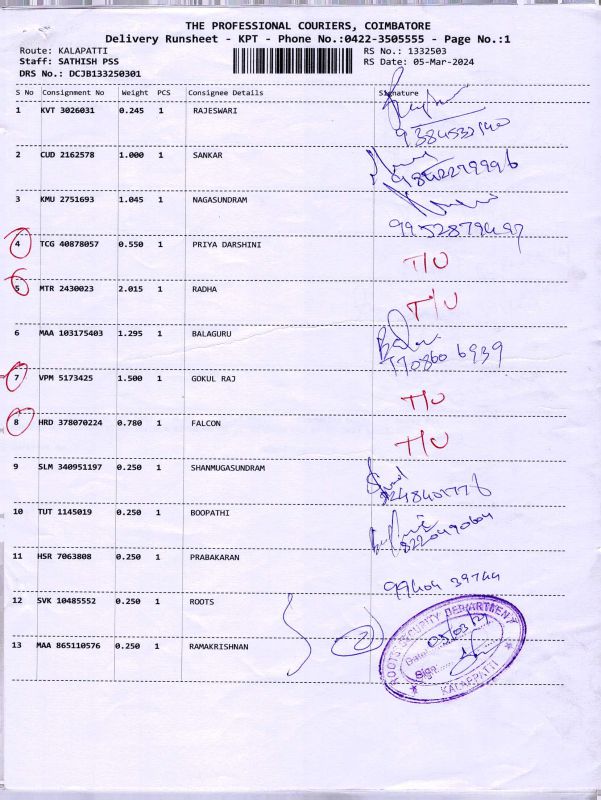 THE PROFESSIONAL COURIERS, COIMBATORE
Delivery Runsheet - KPT - Phone No.:0422-3505555 - Page No.:1
Route: KALAPATTI RS No.: 1332503
Staff: SATHISH PSS RS Date: 05-Mar-2024
DRS No.: DCJB133250301
S No Consignment No Weight PCS Consignee Details Signature
1 KVT 3026031 0.245 1 RAJESWARI
2 CUD 2162578 1.000 1 SANKAR
3 KMU 2751693 1.045 1 NAGASUNDRAM
4 TCG 40878057 0.550 1 PRIYA DARSHINI T/U
5 MTR 2430023 2.015 1 RADHA T/U
6 MAA 103175403 1.295 1 BALAGURU
7 VPM 5173425 1.500 1 GOKUL RAJ T/U
8 HRD 378070224 0.780 1 FALCON T/U
9 SLM 340951197 0.250 1 SHANMUGASUNDRAM
10 TUT 1145019 0.250 1 BOOPATHI
11 HSR 7063808 0.250 1 PRABAKARAN 99404 39744
12 SVK 10485552 0.250 1 ROOTS
13 MAA 865110576 0.250 1 RAMAKRISHNAN
2
ROOTS SECURITY DEPARTMENT
Date
Sign
KALAPATTI